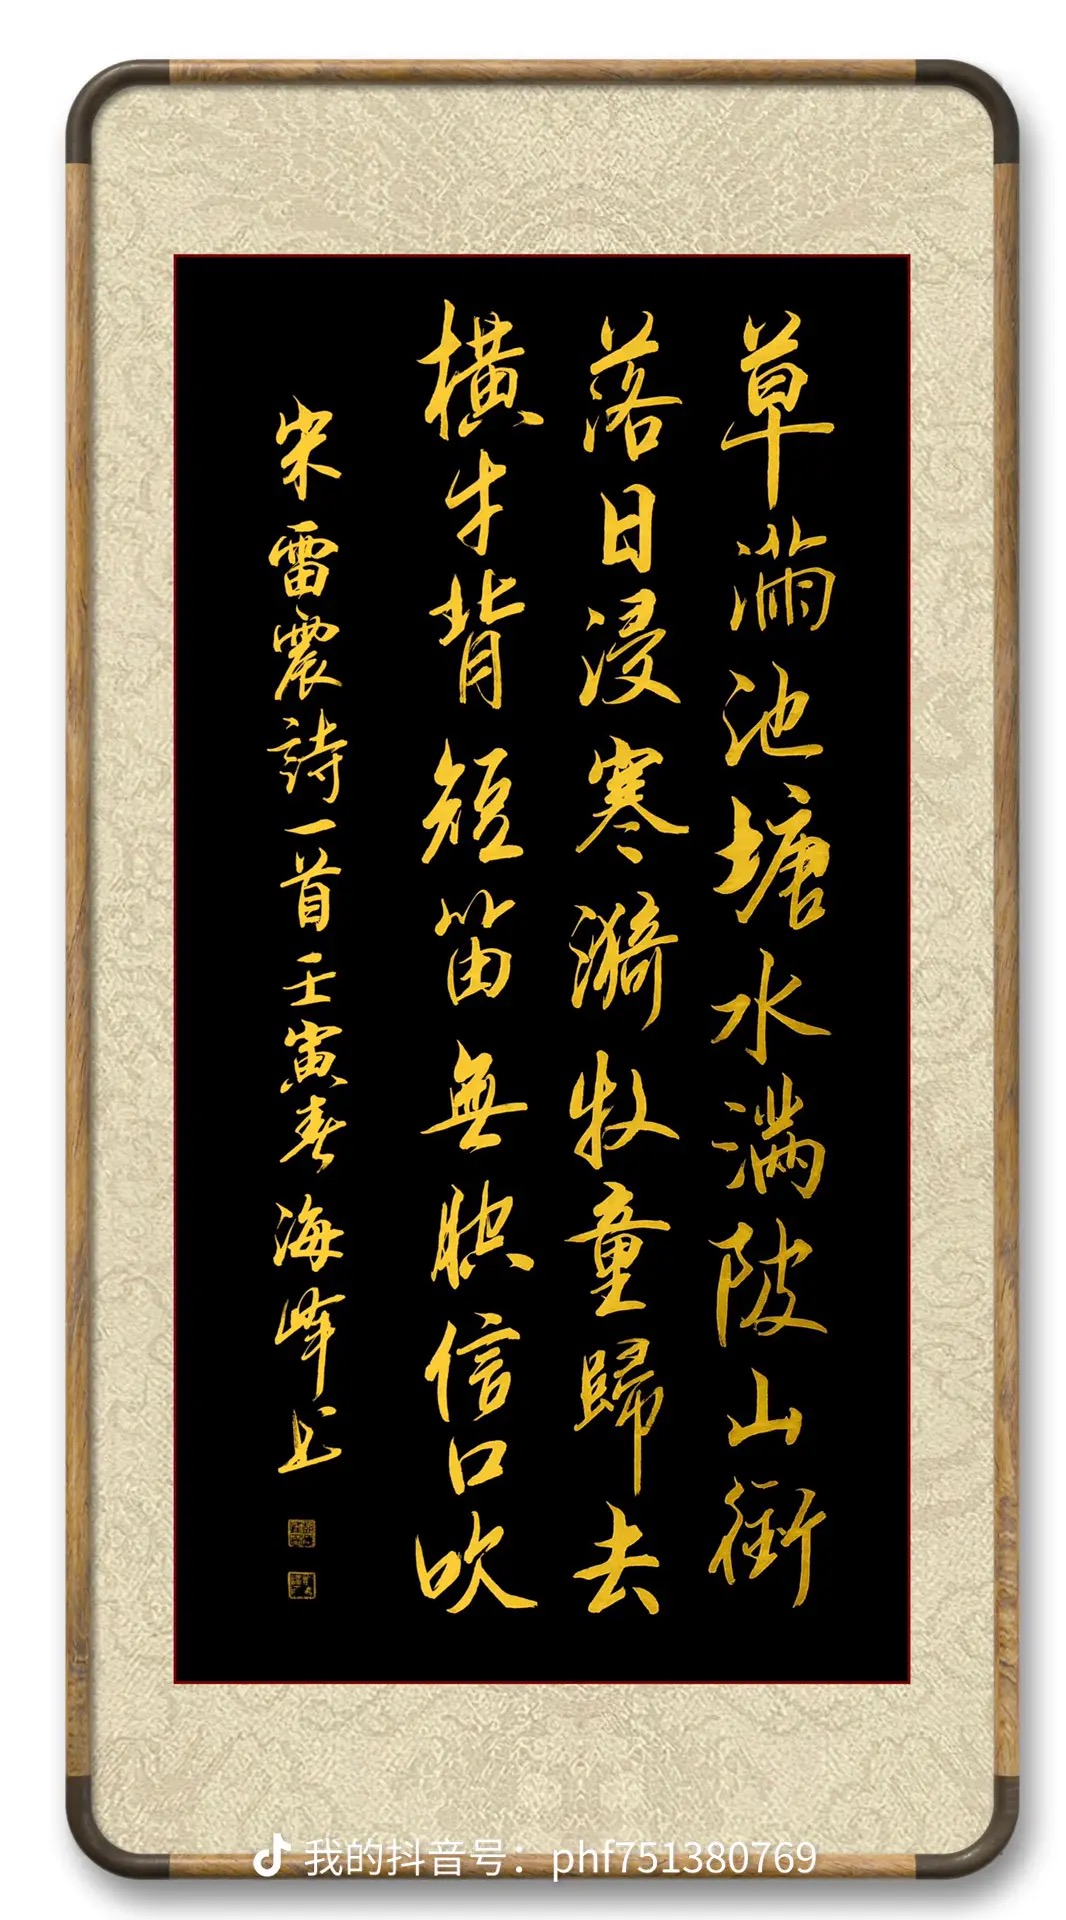 草滿池塘水満陂山銜
落日浸寒漪牧童歸去
橫牛背短笛無腔信口吹
宋雷震詩一首壬寅春海峰书
我的抖音号：phf751380769